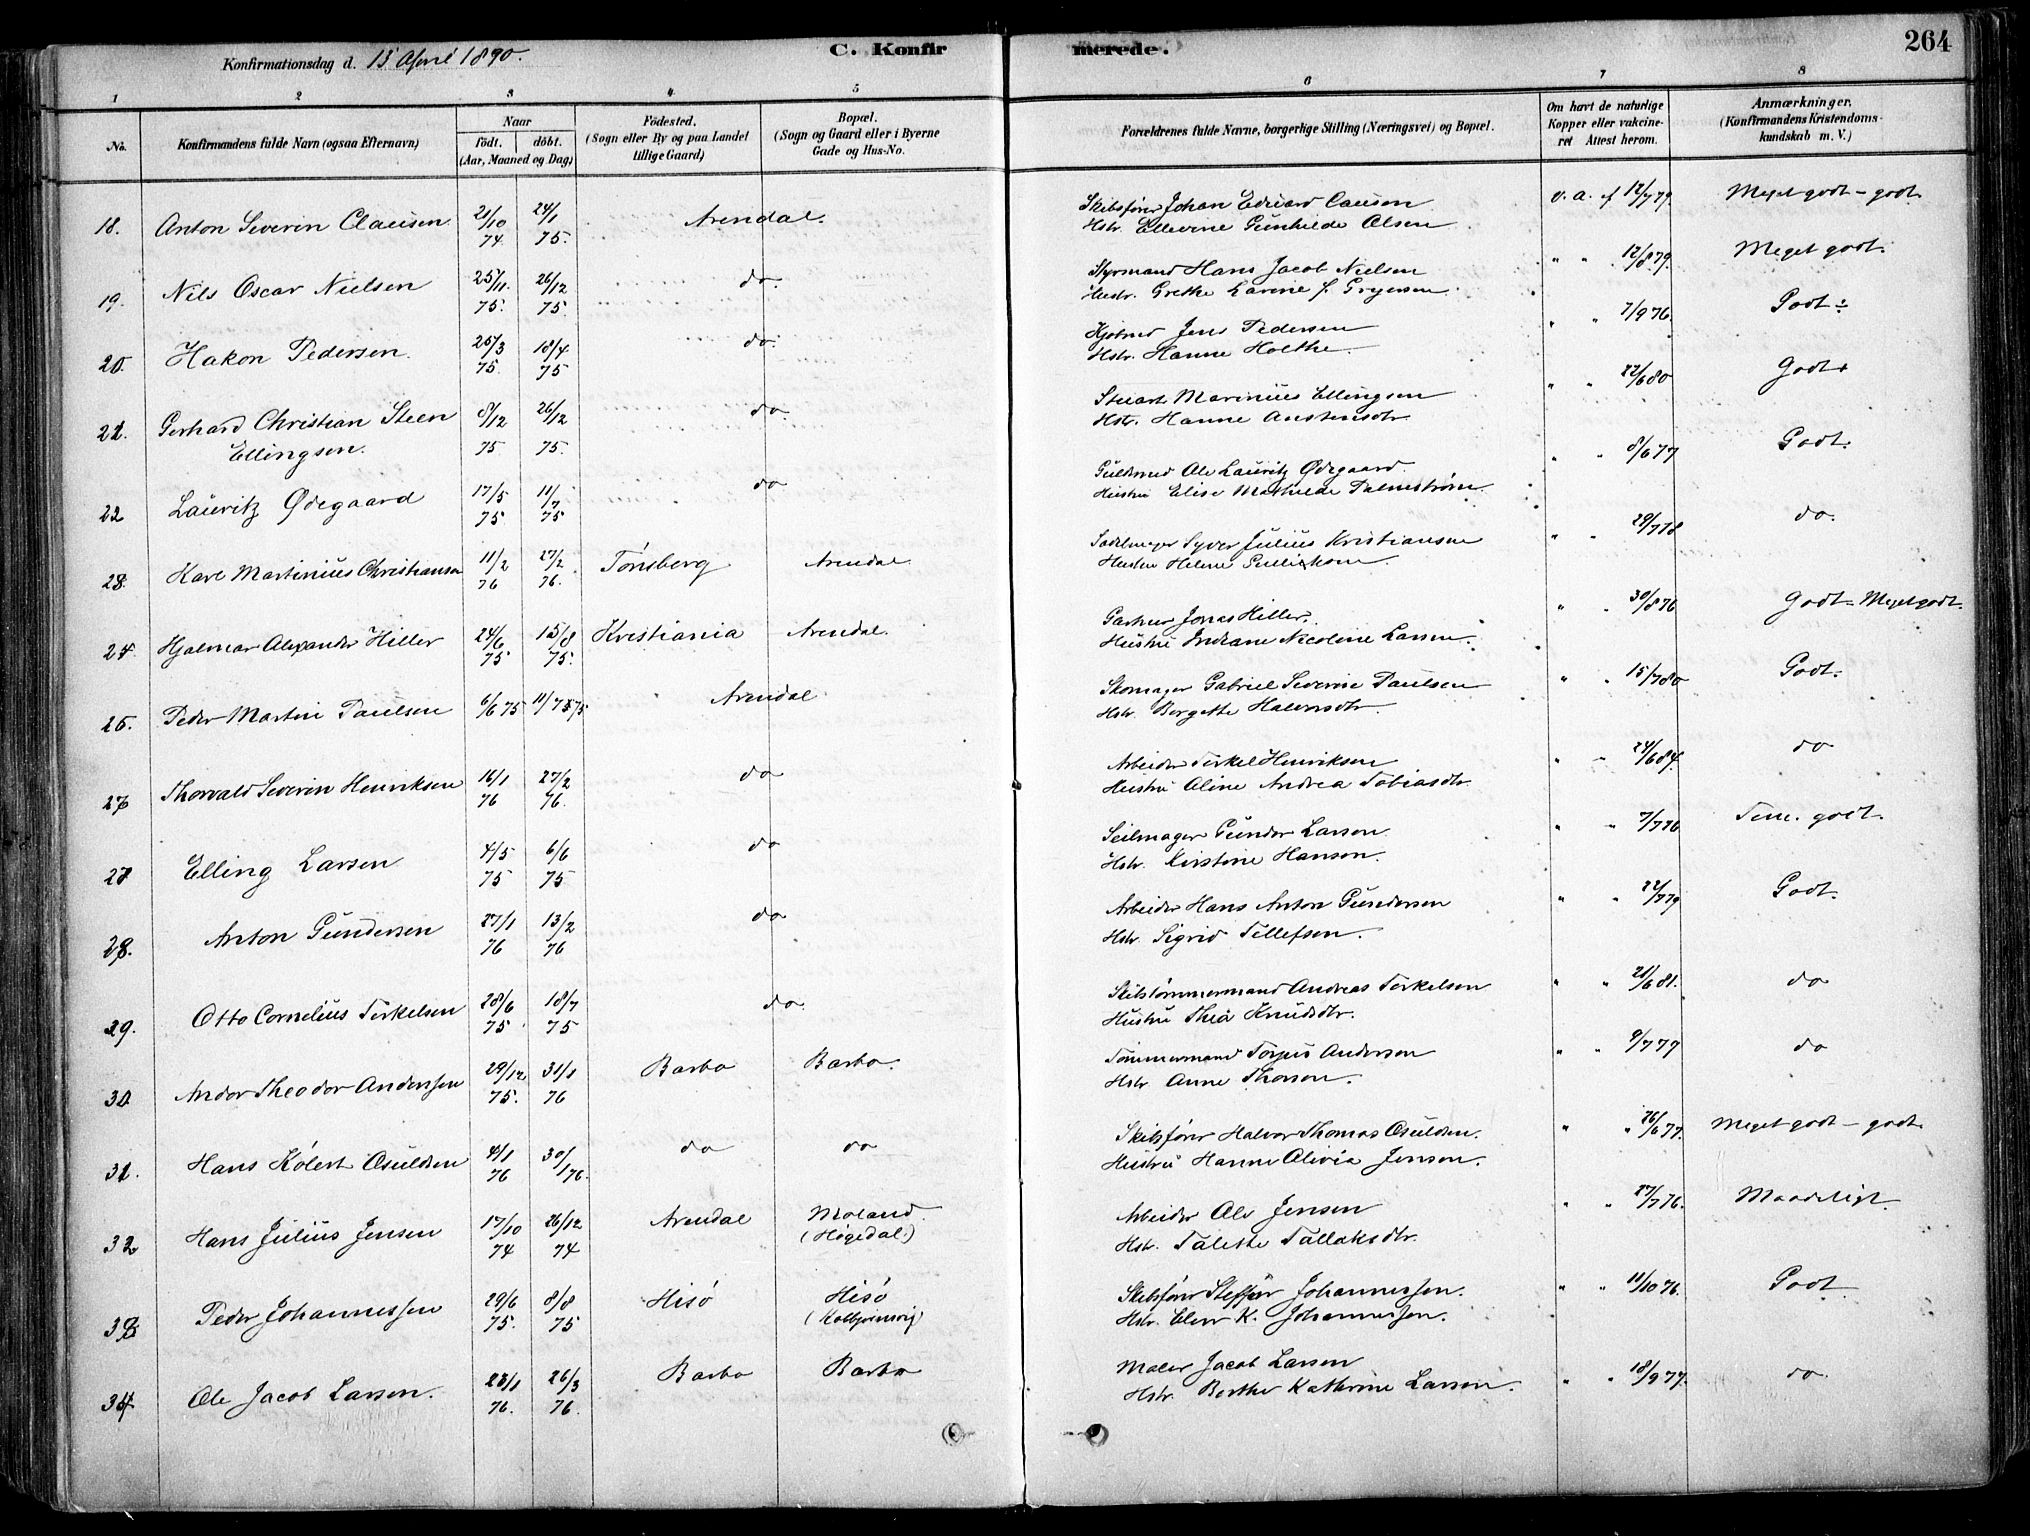 Konfirmationsdag d. 15 April 1890.
C. Konfirmerede.
264
1 2 3 4 5 6 7 8
No.
Konfirmandens fulde Navn (ogsaa Efternavn)
Naar
födt. döbt.
(Aar, Maaned og Dag)
Födested.
(Sogn eller By og paa Landet
tillige Gaard)
Bopæl.
(Sogn og Gaard eller i Byerne
Gade og Hus-No.
Forældrenes fulde Navne, borgerlige Stilling (Næringsvei) og Bopæl.
Om havt de naturlige
Kopper eller vakcine-
ret Attest herom.
Anmærkninger.
(Konfirmandens Kristendoms-
kundskab m. V.)
18. Anton Severin Clausen 21/10 74. 24/1 75. Arendal. Skibsfører Johan Eduard Causen v. a. f 12/7 79. Meget godt - godt.
Hstr. Ellevine Gunhilde Olsen
19. Nils Oscar Nielsen 25/11. 75. 26/12 75. do. Styrmand Hans Jacob Nielsen " " 12/8 79. Meget godt.
Hustr. Grethe Larine f.
20. Hakon Pedersen. 25/3 75. 18/4 75 do. Jens Pedersen " " 7/9 76. Godt ÷
Hstr. Hanne Holthe.
21. Gerhard Christian Steen 8/12 75 26/12 75. do. Stuart Marinius Ellingsen " " 22/6 80 Godt +
Ellingsen. Hstr. Hanne Austensdtr
22 Lauritz Ødegaard 17/5 75. 11/7 75 do Guldsmed Ole Lauritz Ødegaard. " " 8/6 77 Godt.
Hustru Elise Mathilde Palmstrøm.
23. Karl Martinius Christiansen 11/2 76 27/2 76. Tønsberg Arendal. Sadelmager Syver Julius Kristiansen " " 29/7 78 do.
Hustru Helene Gulliksen.
24. Hjalmar Alexander Hiller 24/6 75 15/8 75. Kristiania Arendal. Gartner Jonas Hiller. " " 30/8 76 Godt - Meget godt.
Hustru Indiane Nicoline Larsen.
25. Peder Martin Paulsen 6/6 75 11/7 75 Arendal Skomager Gabriel Severin Paulsen " " 15/7 80 Godt.
Hstr. Borgette Halvorsdtr.
26 Thorvald Severin Henriksen 16/1 76 27/2 76. do Arbeider Terkel Henriksen " " 24/6 84. do
Hustru Aline Andrea Tobiasdtr.
27 Elling Larsen 4/5 75 6/6 75 do Seilmager Gunder Larsen " " 7/7 76 Tem. godt.
Hstr. Kirstine Hansen.
28. Anton Gundersen 27/1 76 13/2 76 do Arbeider Hans Anton Gundersen " " 22/7 79 Godt.
Hstr. Sigrid Tellefsen.
29. Otto Cornelius Terkelsen 28/6 75 18/7 75 do. Skibstømmermand Andreas Terkelsen " " 21/6 81. do
Hustru Thea Knudsdtr.
30. Andor Theodor Anderssen 29/12 75. 31/1 76 Barbo Barbo. Tømmermand Torjus Andersen " " 9/7 77 do
Hstr. Anne Thorsen.
31. Hans Kølert Osuldsen 4/1 76 30/1 76. do do Skibsfører Halvor Thomas Osuldsen. " " 26/6 77. Meget godt - godt.
Hustru Hanne Olivia Jensen.
32 Hans Julius Jensen 17/10 74 26/12 74 Arendal Moland (Høgedal.) Arbeider Ole Jensen " " 27/7 76. Maadeligt.
Hstr. Talette Tallaksdtr.
33 Peder Johannessen 29/6 75. 8/8 75 Hisø Hisø (Kolbjørnsvig) Skibsfører Steffen Johannessen. " " 11/10 76. Godt
Hstr. Elen K. Johannessen.
34 Ole Jacob Larsen. 23/1 76. 26/3 76. Barbo Barbo Maler Jacob Larsen " " 18/9 77. do.
Hstr. Berthe Kathrine Larsen.